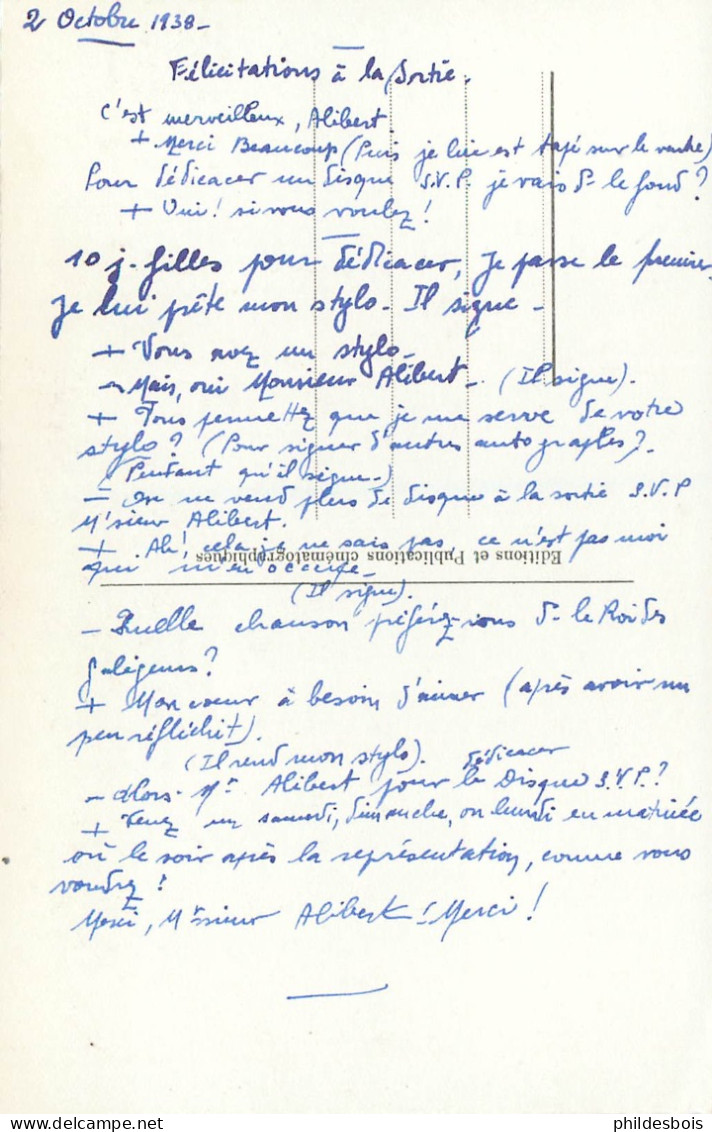 2 Octobre 1938-
Félicitations à la Sortie.
C'est merveilleux, Alibert.
+ Merci Beaucoup (Puis je lui est tapé sur le ventre)
Pour dédicacer un disque S.V.P. je vais d- le fond ?
+ Oui ! si vous voulez !
10 j. filles pour dédicacer, je passe la première
Je lui prête mon stylo- Il signe -
+ Vous avez un stylo-
- Mais, oui Monsieur Alibert- (Il signe).
+ Vous permettez que je me serve de votre
stylo ? (Pour signer d'autres autographes ?.
Pendant qu'il signe-)
- On ne vend plus de disque à la sortie S.V.P
M'sieur Alibert.
+ Ah ! cela je ne sais pas, ce n'est pas moi
Editions et Publications cinématographiques
qui m'en occupe-
(Il signe).
- Quelle chanson préférez-vous d- le Roi des
galégeurs ?
+ Mon coeur à besoin d'aimer (après avoir un
peu réfléchit).
(Il rend mon stylo).
- Alors- Mr Alibert pour dédicacer le Disque S.V.P. ?
+ Venez un samedi, dimanche, ou lundi en matinée
où le soir après la représentation, comme vous
voudrez !
Merci, M'ssieur Alibert ! Merci !
philedesbois